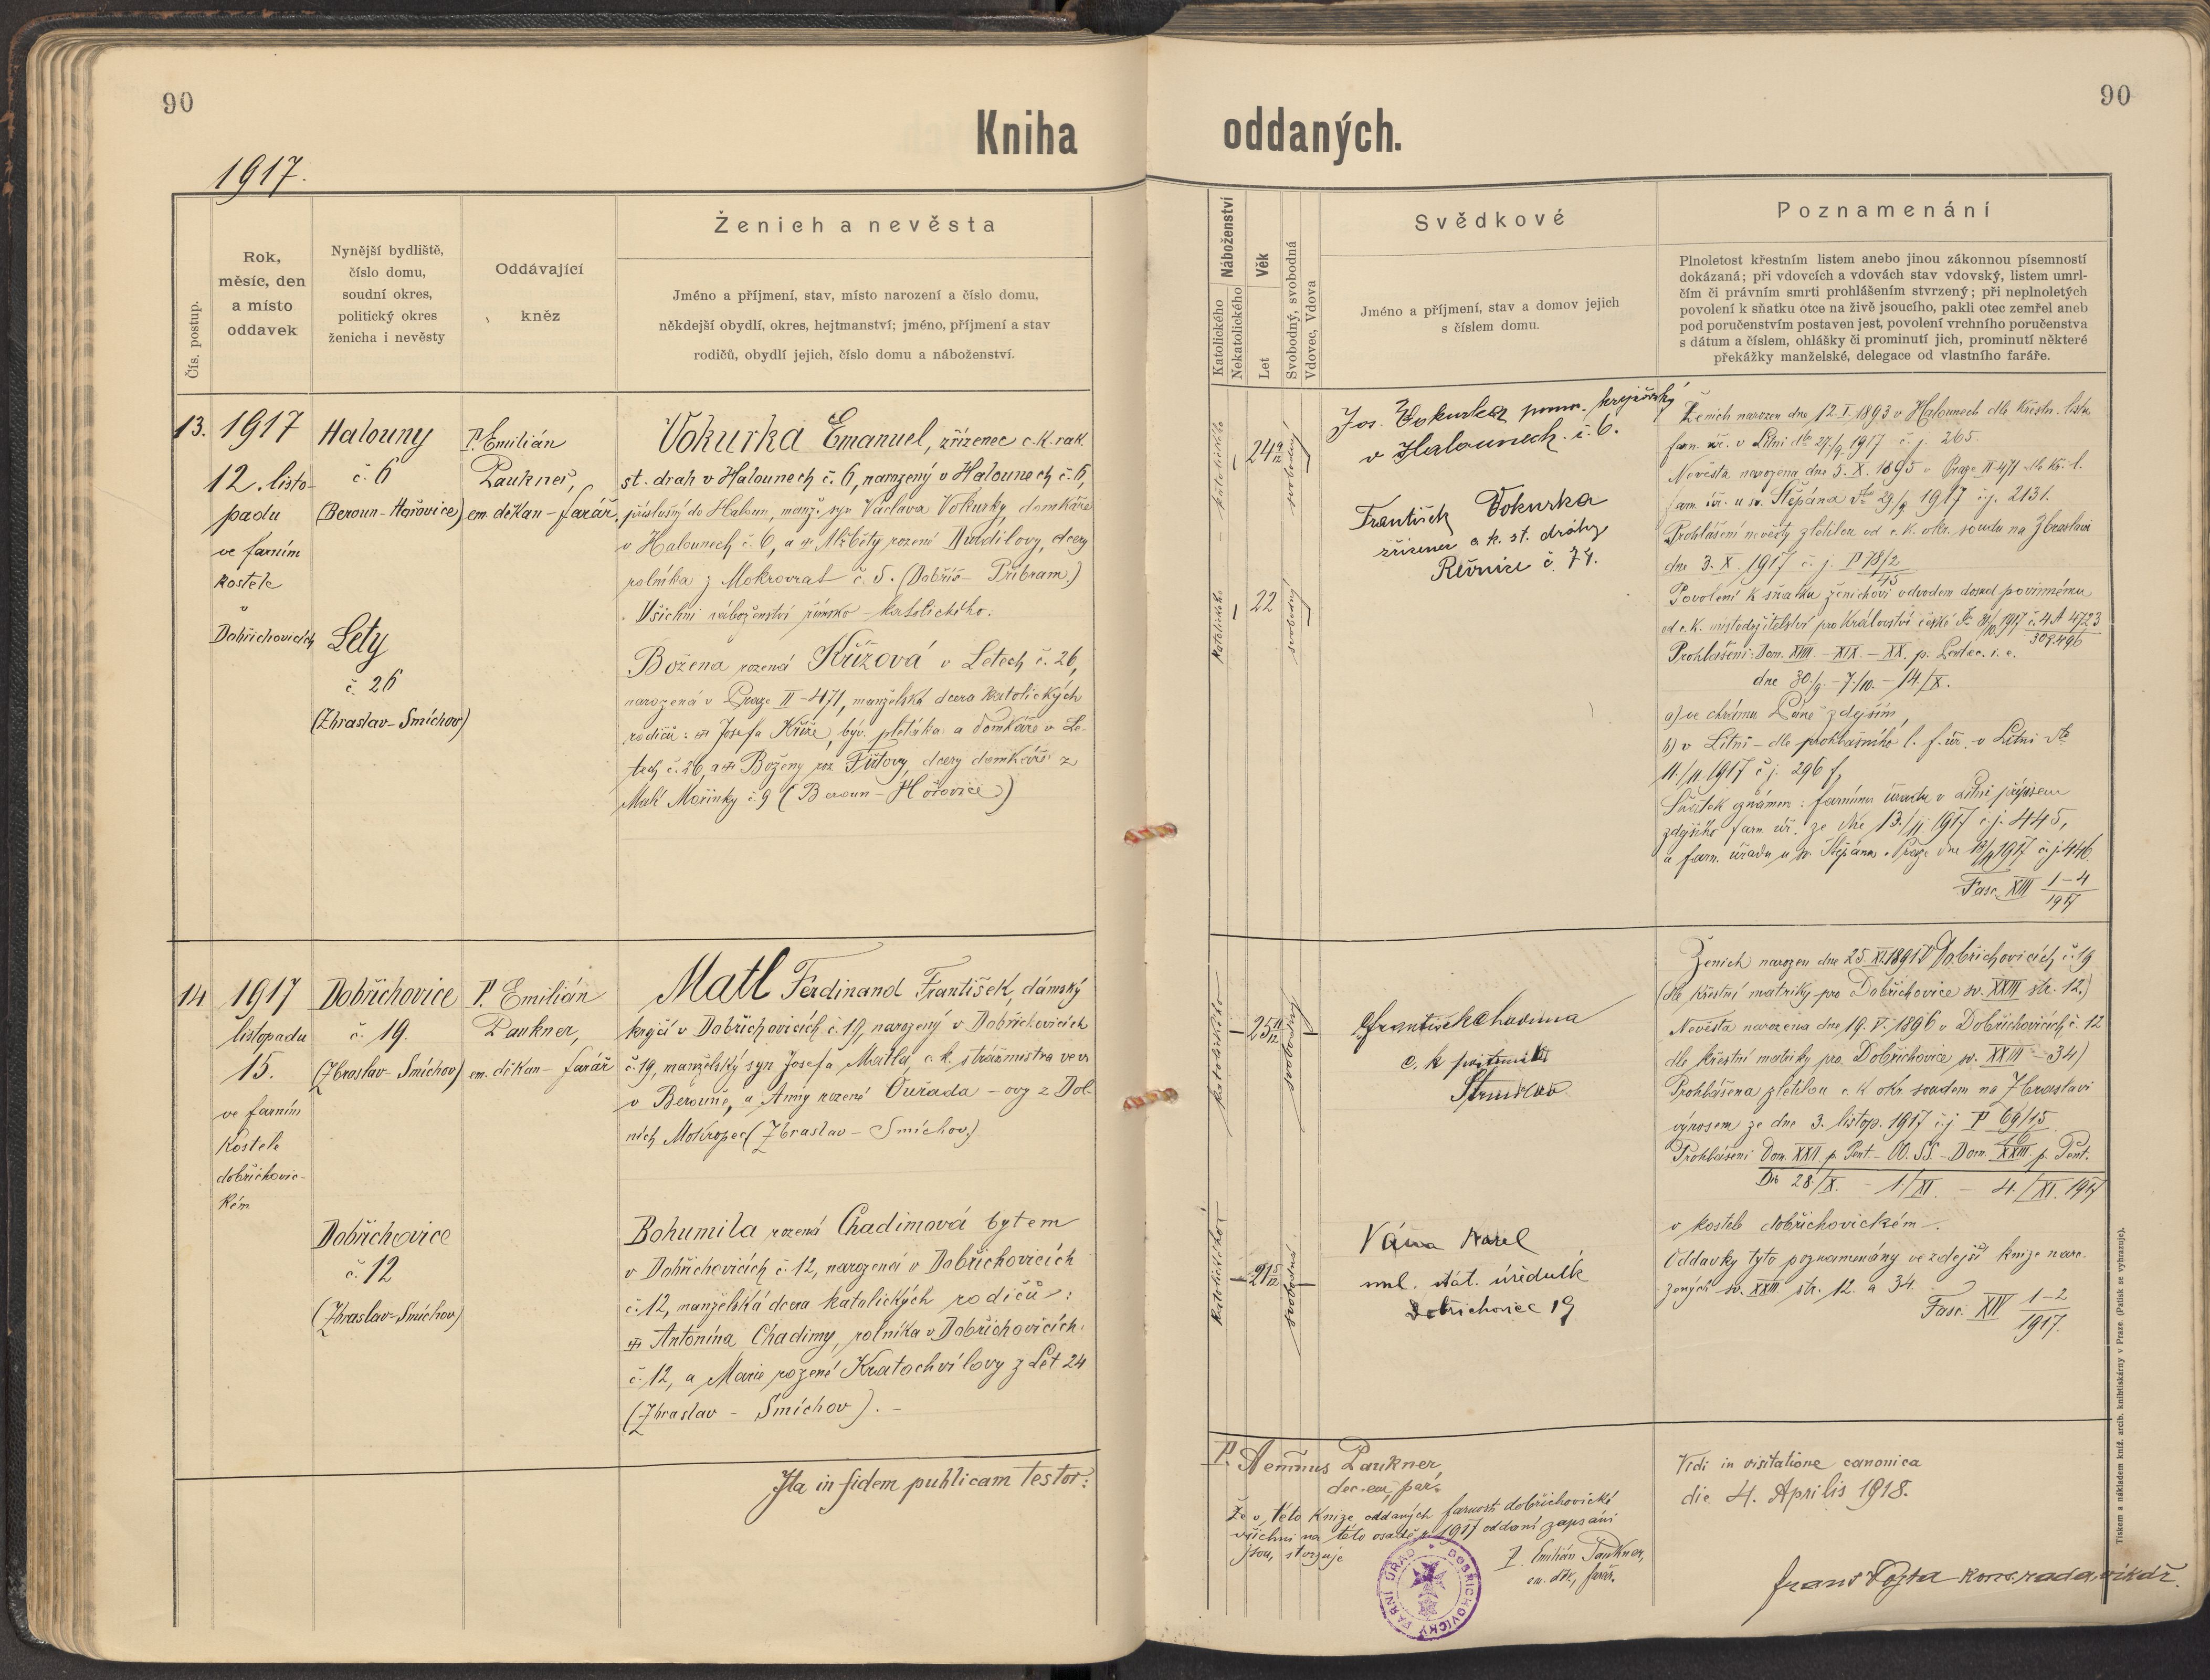 90
90
Kniha oddaných.
1917.
Čís. postup.
Rok,
měsíc, den
a místo
oddavek
Nynější bydliště,
číslo domu,
soudní okres,
politický okres
ženicha i nevěsty
Oddávající
kněz
Ženich a nevěsta
Jméno a příjmení, stav, místo narození a číslo domu,
někdejší obydlí, okres, hejtmanství; jméno, příjmení a stav
rodičů, obydlí jejich, číslo domu a náboženství.
Náboženství
Katolického
Nekatolického
Věk
Let
Svobodný, svobodná
Vdovec, Vdova
Svědkové
Jméno a příjmení, stav a domov jejich
s číslem domu.
Poznamenání
Plnoletost křestním listem anebo jinou zákonnou písemností
dokázaná; při vdovcích a vdovách stav vdovský, listem umrl-
čím či právním smrti prohlášením stvrzený; při neplnoletých
povolení k sňatku otce na živě jsoucího, pakli otec zemřel aneb
pod poručenstvím postaven jest, povolení vrchního poručenstva
s dátum a číslem, ohlášky či prominutí jich, prominutí některé
překážky manželské, delegace od vlastního faráře.
13.
1917
12. listo-
padu
ve farním
kostele
v
Dobřichovicích
Halouny
č. 6
(Beroun-Hořovice)
Lety
č. 26
(Zbraslav-Smíchov)
P. Emilián
Paukner,
em. děkan-farář
Vokurka Emanuel, zřízenec c. k. rak.
st. drah v Halounech č. 6, narozený v Halounech č. 6,
příslušný do Haloun, manž. syn Václava Vokurky domkáře
v Halounech č. 6, a Alžběty rozené Dvídilovy, dcery
rolníka z Mokrovrat č. 5. (Dobříš-Příbram.)
Všichni náboženství římsko-katolického.
Božena rozená Křížová v Letech č. 26,
narozená v Praze II-471, manželská dcera katolických
rodičů: Josefa Kříže, býv. a domkáře v Le-
tech č. 26, a Boženy roz. dcery domkáře z
Malé Mořinky č. 9 (Beroun-Hořovice)
katolického
24 9/12
svobodný
katolického
22
svobodný
Jos. Vokurka pomn. krejčovský
v Halounech č. 6.
František Vokurka
zřízenec c. k. st. dráhy
Řevnice č. 74.
Ženich narozen dne 12. I. 1893 v Halounech dle křestn. listu
farn. úř. v Litni dto 27./9. 1917 č. j. 265.
Nevěsta narozena dne 5. X. 1895 v Praze II-471 dle kř. l.
farn. úř. u sv. Štěpána dto 29/9 1917 č. j. 2131.
Prohlášení nevěsty zletilou od c. k. okr. soudu na Zbraslavi
dne 3. X. 1917 č. j. P 78/2
45
Povolení k sňatku ženichovi odvodem dosud povinnému
od c. k. místodržitelství pro Království české 1917 č. 4 A 4723
308.496
Prohlášení: Dom. XVIII - XIX - XX. p. Pentec. i. e.
dne 30./9. - 7./10. - 14./X.
a) ve chrámu Páně zdejším,
b) v Litni - dle prohlášního l. f. úř. v Litni dto
11./11. 1917 č. j. 296 f,
Sňatek oznámen: farnímu úřadu v Litni přípisem
zdejšího farn. úř. ze dne 13./11. 1917 č. j. 445,
a farn. úřadu u sv. Štěpána v Praze dne 13/11 1917 č. j. 446.
Fasc. XIII 1-4
1917
14
1917
listopadu
15.
ve farním
kostele
dobřichovic-
kém
Dobřichovice
č. 19.
(Zbraslav-Smíchov)
Dobřichovice
č. 12
(Zbraslav-Smíchov)
P. Emilián
Paukner,
em. děkan-farář
Matl Ferdinand František, dámský
krejčí v Dobřichovicích č. 19, narozený v Dobřichovicích
č. 19, manželský syn Josefa Matla, c. k. strážmistra ve v.
v Berouně, a Anny rozené Ouřada-ovy z Dol-
ních Mokropec (Zbraslav-Smíchov.)
Bohumila rozená Chadimová bytem
v Dobřichovicích č. 12, narozená v Dobřichovicích
č. 12, manželská dcera katolických rodičů:
Antonína Chadimy, rolníka v Dobřichovicích
č. 12, a Marie rozené Kratochvílovy z Let 24
(Zbraslav - Smíchov). -
katolického
25 11/12
svobodný
katolického
21 5/12
svobodná
František Chadima
c. k.
Váňa Karel
stát. úředník
Dobřichovice 19
Ženich narozen dne 25. XI. 1891 v Dobřichovicích č. 19
(dle křestní matriky pro Dobřichovice sv. XXIII str. 12.)
Nevěsta narozena dne 19. V. 1896 v Dobřichovicích č. 12
dle křestní matriky pro Dobřichovice sv. XXIII - 34)
Prohlášena zletilou c. k. okr. soudem na Zbraslavi
výnosem ze dne 3. listop. 1917 č. j. P 69/15
16
Prohlášení Dom. XXII. p. Pent. - OO. SS. - Dom. XXIII. p. Pent.
Die 28./X. - 1./XI. - 4./XI. 1917
v kostele dobřichovickém.
Oddavky tyto poznamenány ve zdejší knize naro-
zených sv. XXIII. str. 12. a 34.
Fasc. XIV 1-2
1917.
Ita in fidem publicam testor:
P. Aemilianus Paukner
dec. em., par.
Že v této knize oddaných farnosti dobřichovické
všichni na této osadě r. 1917 oddaní zapsáni
jsou, stvrzuje
P. Emilián Paukner,
em. děk., farář.
FARNÍ ÚŘAD DOBŘICHOVICKÝ
Vidi in visitatione canonica
die 4. Aprilis 1918.
Franc. Vojta kons. rada, vikář.
Tiskem a nákladem kníž. arcib. knihtiskárny v Praze. (Patisk se vyhrazuje).